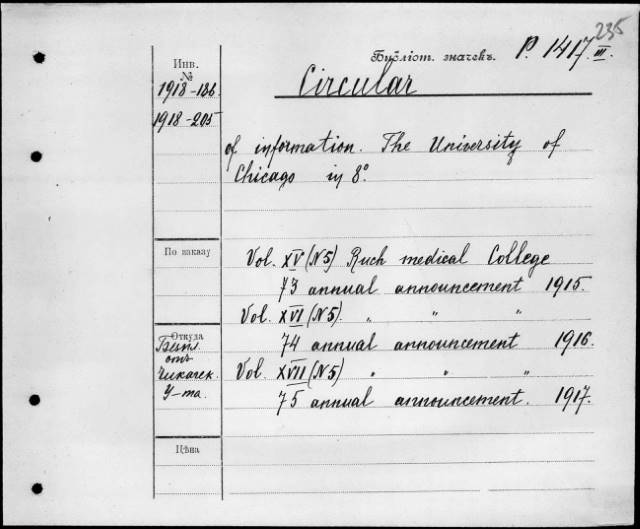 235
Библіот. значекъ. P. 1417. III.
Инв.
№
1918-186
1918-205
Circular
of information. The University of
Chicago in 8°.
По заказу
Vol. XV (N5) Ruch medical College
73 annual announcement 1915.
Vol. XVI (N5). " " "
74 annual announcement 1916.
Откуда
отъ
Чикагск.
У-та.
Vol. XVII (N5) " " "
75 annual announcement. 1917.
Цѣна